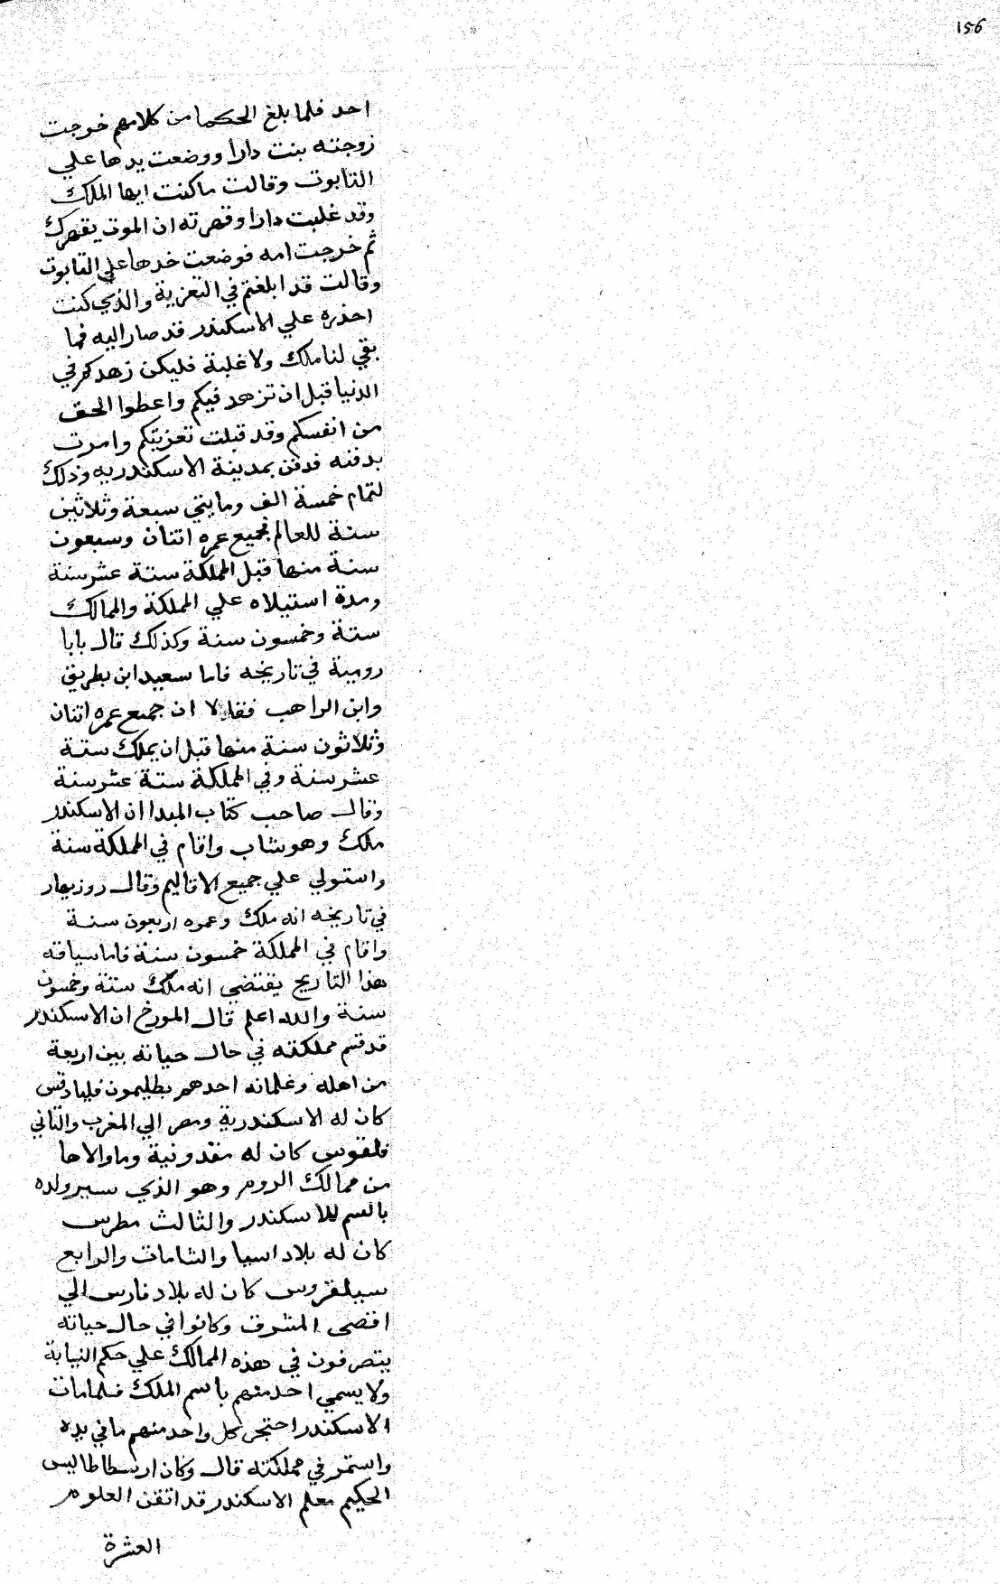 156
احد فلما بلغ الحكما من كلامهم خرجت
زوجته بنت دارا ووضعت يدها علي
التابوت وقالت ما كنت ايها الملك
وقد غلبت دارا وقهرته ان الموت يقهرك
ثم خرجت امه فوضعت خدها علي التابوت
وقالت قد ابلغتم في التعزية والذي كنت
احذره علي الاسكندر قد صار اليه فما
بقي لنا ملك ولا غلبة فليكن زهدكم في
الدنيا قبل ان تزهد فيكم واعطوا الحق
من انفسكم وقد قبلت تعزيتكم وامرت
بدفنه فدفن بمدينة الاسكندريه وذلك
لتمام خمسة الف ومايتي سبعة وثلاثين
سنة للعالم فجميع عمره اتنان وسبعون
سنة منها قبل المملكة ستة عشر سنة
ومدة استيلاه علي المملكة والممالك
ستة وخمسون سنة وكذلك قال بابا
رومية في تاريخه فاما سعيد ابن بطريق
وابن الراهب فقالا ان جميع عمره اتنان
وثلاثون سنة منها قبل ان يملك ستة
عشر سنة وفي المملكة ستة عشر سنة
وقال صاحب كتاب المبدا ان الاسكندر
ملك وهو شاب واقام في المملكة سنة
واستولي علي جميع الاقاليم وقال روزبهار
في تاريخه انه ملك وعمره اربعون سنة
واقام في المملكة خمسون سنة فاما سياقه
هذا التاريخ يقتضي انه ملك ستة وخمسون
سنة والله اعلم قال المورخ ان الاسكندر
قد قسم مملكته في حال حياته بين اربعة
من اهله وغلمانه احدهم بطليمون فليادفس
كان له الاسكندرية ومصر الي المغرب والتاني
فلقوس كان له مقدونية وما والاها
من ممالك الروم وهو الذي سير ولده
بالسم للاسكندر والثالث مطرس
كان له بلاد اسيا والشامات والرابع
سيلفروس كان له بلاد فارس الي
اقصى المشرق وكانوا في حال حياته
يتصرفون في هذه الممالك علي حكم النيابة
ولا يسمي احد منهم باسم الملك فلما مات
الاسكندر احتجر كل واحد منهم ما في يده
واستمر في مملكته قال وكان ارسطاطاليس
الحكيم معلم الاسكندر قد اتقن العلوم
العشرة